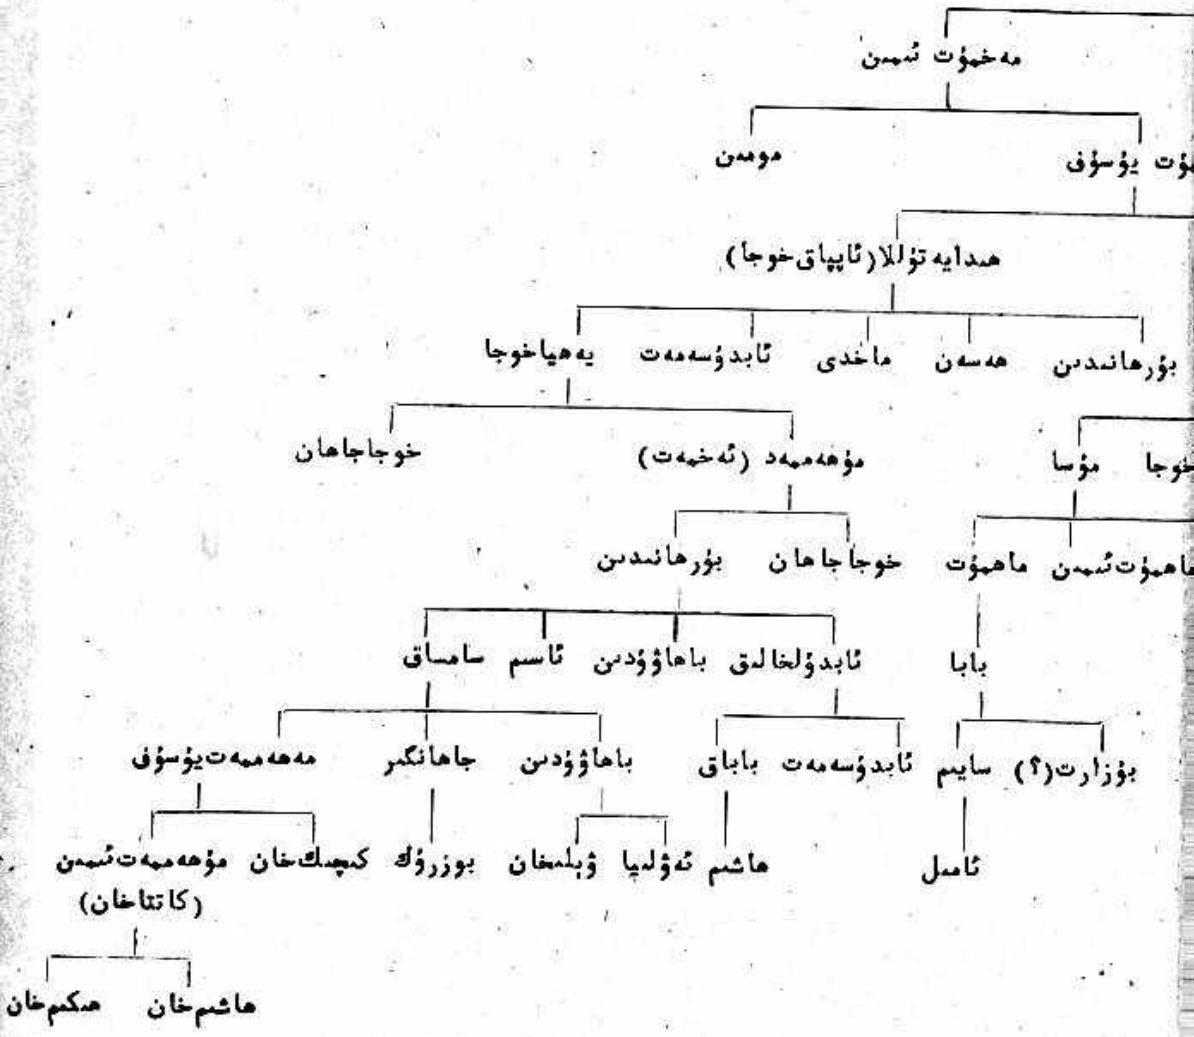 مەخمۇت ئىمىن
يۇسۇف مومىن
ھىدايەتۇللا(ئاپپاق خوجا)
بۇرھانىدىن ھەسەن ماخدى ئابدۇسەمەت يەھياخوجا
خوجا مۇسا مۇھەممەد (ئەخمەت) خوجاجاھان
ماھمۇتئىمىن ماھمۇت خوجاجاھان بۇرھانىدىن
بابا ئابدۇلخالىق باھاۋۇدىن ئاسىم سامساق
بۇزارت(؟) سايىم ئابدۇسەمەت باباق باھاۋۇدىن جاھانگىر مەھەممەتيۇسۇف
ئامىل ھاشىم ئەۋلىيا ۋېلىخان بوزرۇك كىچىكخان مۇھەممەتئىمىن
(كاتتاخان)
ھاشىمخان ھىكىمخان